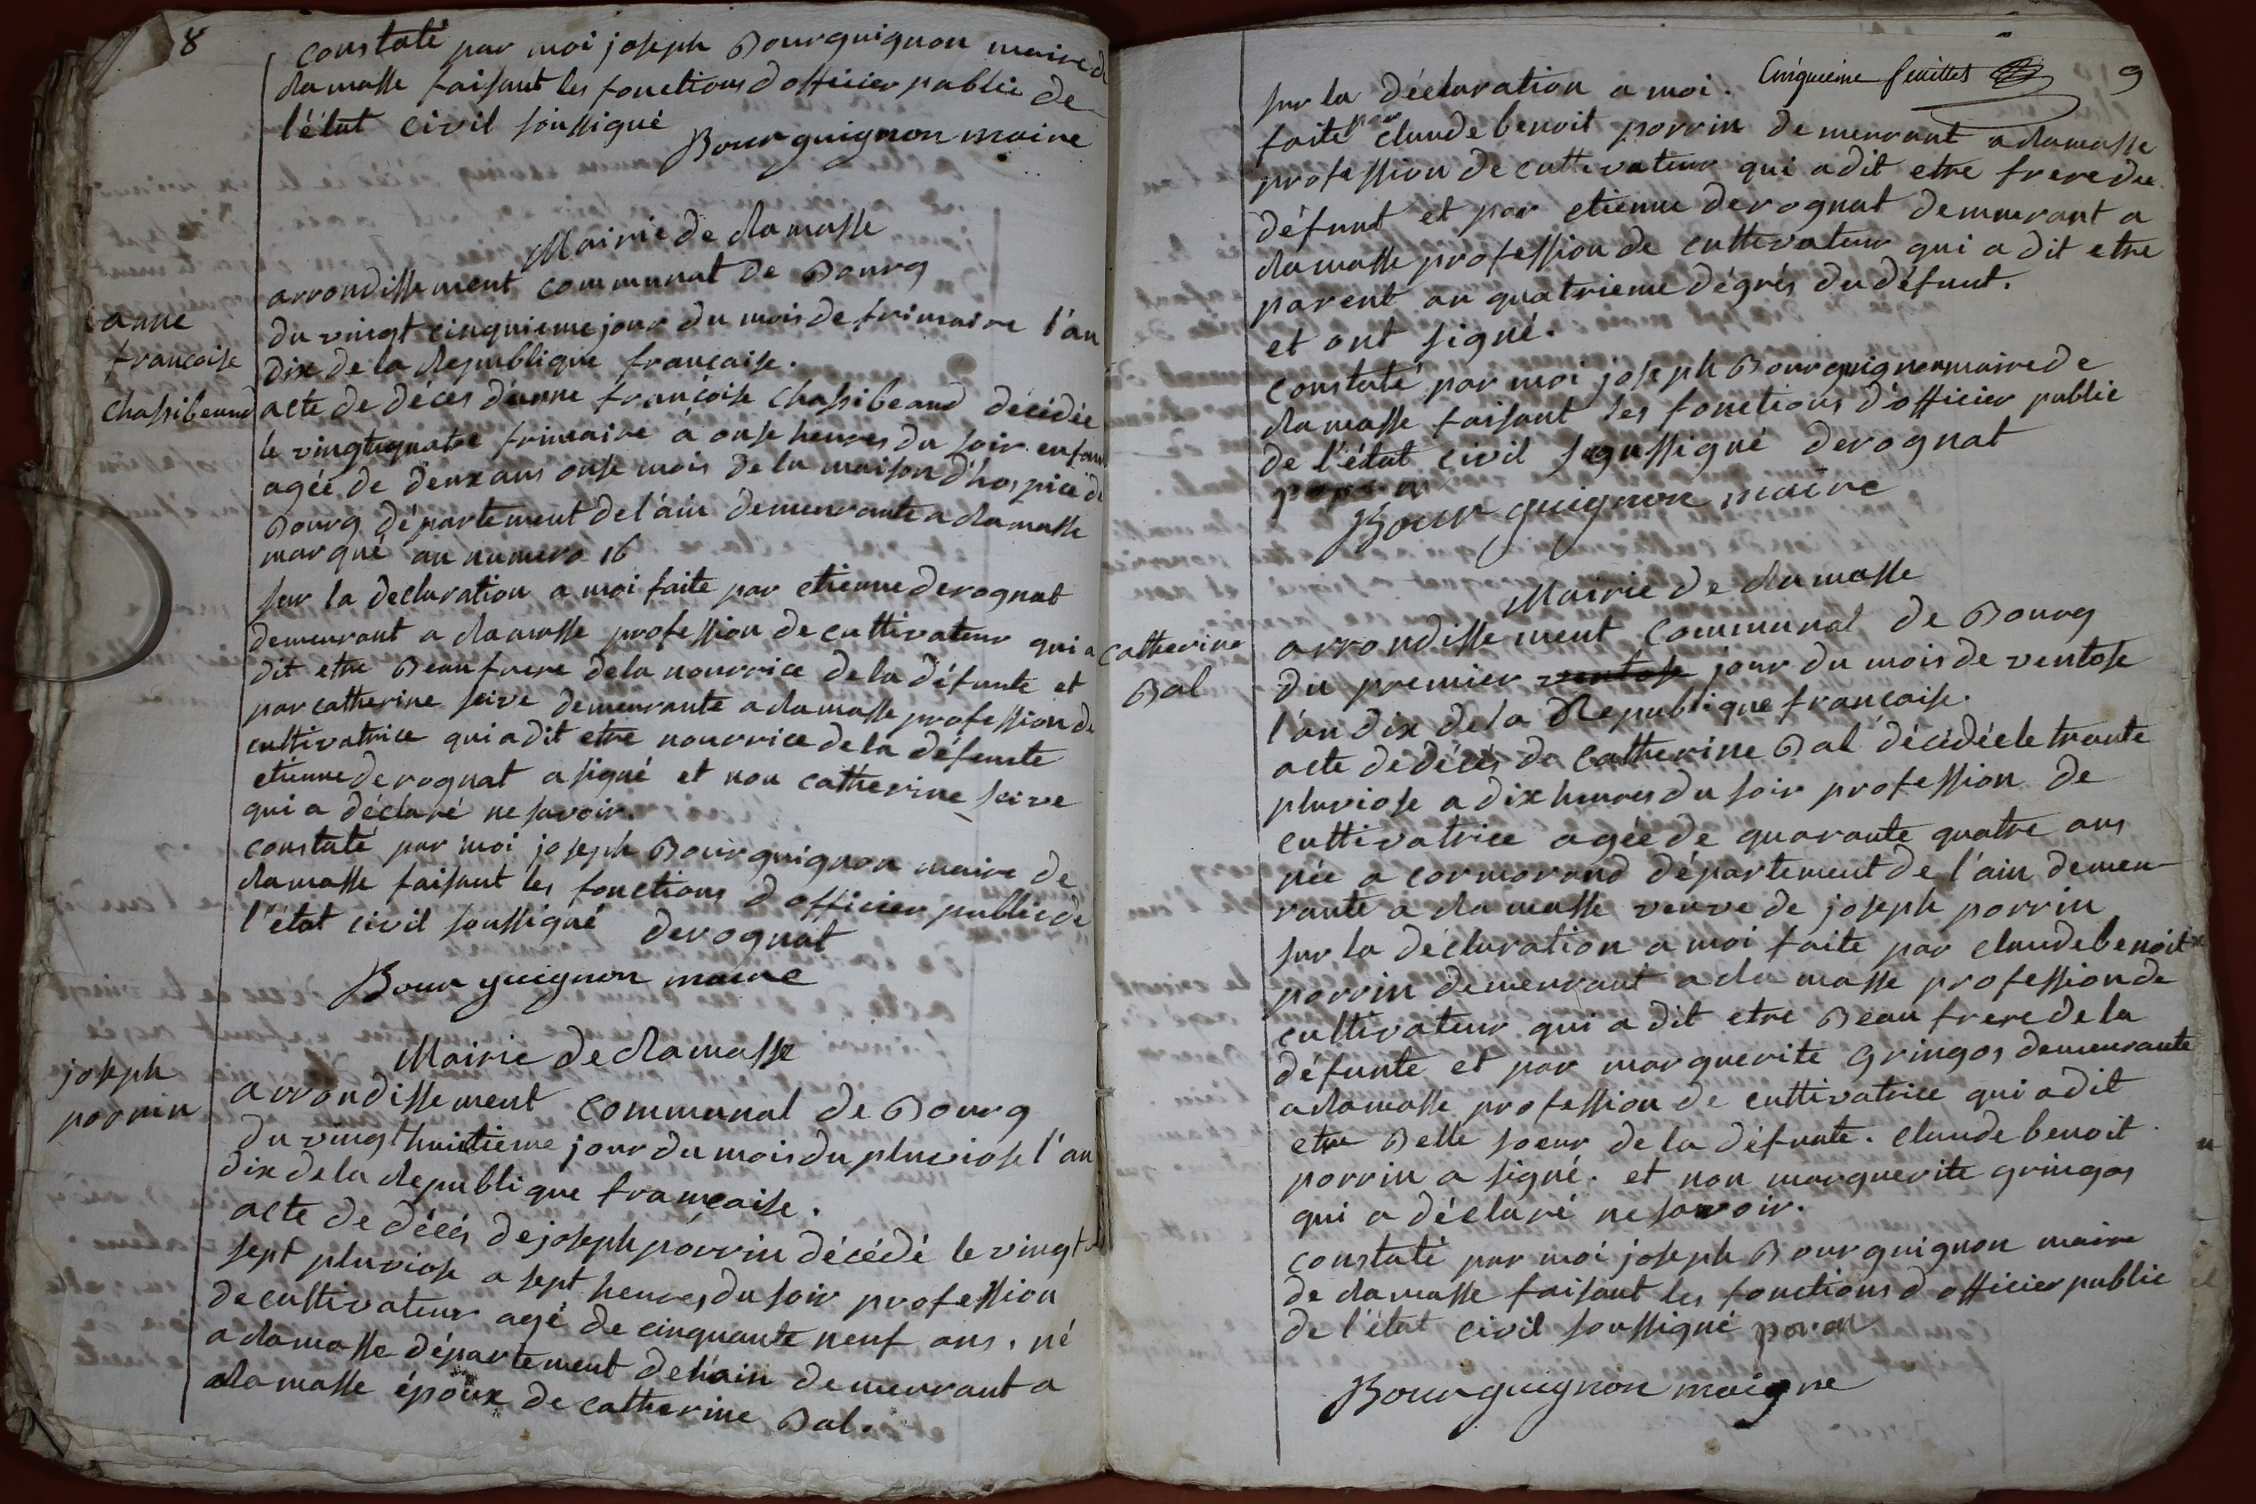 8
constaté par moi joseph Bourguignon maire de
Ramasse faisant les fonctions d'officier public de
l'état civil soussigné
Bourguignon maire
Mairie de Ramasse
arrondissement communal de Bourg
anne
francoise
Chassibeaud
du vingt cinquieme jour du mois de frimaire l'an
dix de la Republique française.
acte de déces d'anne françoise Chassibeaud décédée
le vingtquatre frimaire à onse heures du soir enfant
agée de deux ans onse mois de la maison d'hospice de
Bourg département de l'ain demeurante a Ramasse
marqué au numero 16
sur la declaration a moi faite par etienne derognat
demeurant a Ramasse profession de cultivateur qui a
dit etre Beau frere de la nourrice de la défunte et
par catherine seive demeurante a Ramasse profession de
cultivatrice qui a dit etre nourrice de la défunte
etienne derognat a signé et non catherine seive
qui a déclaré ne savoir.
constaté par moi joseph Bourguignon maire de
Ramasse faisant les fonctions d'officier public de
l'état civil soussigné derognat
Bourguignon maire
Mairie de Ramasse
joseph
porrin
arrondissement communal de Bourg
du vingt huitieme jour du mois du pluviose l'an
dix de la Republique française.
acte de décés de joseph porrin décédé le vingt
sept pluviose a sept heures du soir profession
de cultivateur agé de cinquante neuf ans, né
a Ramasse département de l'ain demeurant a
Ramasse époux de catherine Bal.
Cinquieme feuillet
9
sur la déclaration a moi
faite par claude benoit porrin demeurant a Ramasse
profession de cultivateur qui a dit etre frere du
défunt et par etienne derognat demeurant a
Ramasse profession de cultivateur qui a dit etre
parent au quatrieme dégrés du défunt.
et ont signé.
constaté par moi joseph Bourguignon maire de
Ramasse faisant les fonctions d'officier public
de l'état civil soussigné derognat
Bourguignon maire
Mairie de Ramasse
catherine
Bal
arrondissement communal de Bourg
du premier ventose jour du mois de ventose
l'an dix de la Republique francaise.
acte de décés de Catherine Bal décédée le trante
pluviose a dix heures du soir profession de
cultivatrice agée de quarante quatre ans
née a cormorand département de l'ain demeu-
rante a Ramasse veuve de joseph porrin
sur la déclaration a moi faite par claude benoit
porrin demeurant a Ramasse profession de
cultivateur qui a dit etre Beau frere de la
défunte et par marguerite Gringos demeurante
a Ramasse profession de cultivatrice qui a dit
etre Belle soeur de la défunte. claude benoit
porrin a signé. et non marguerite gringos
qui a déclaré ne savoir.
constaté par moi joseph Bourguignon maire
de Ramasse faisant les fonctions d'officier public
de l'état civil soussigné poron
Bourguignon maire